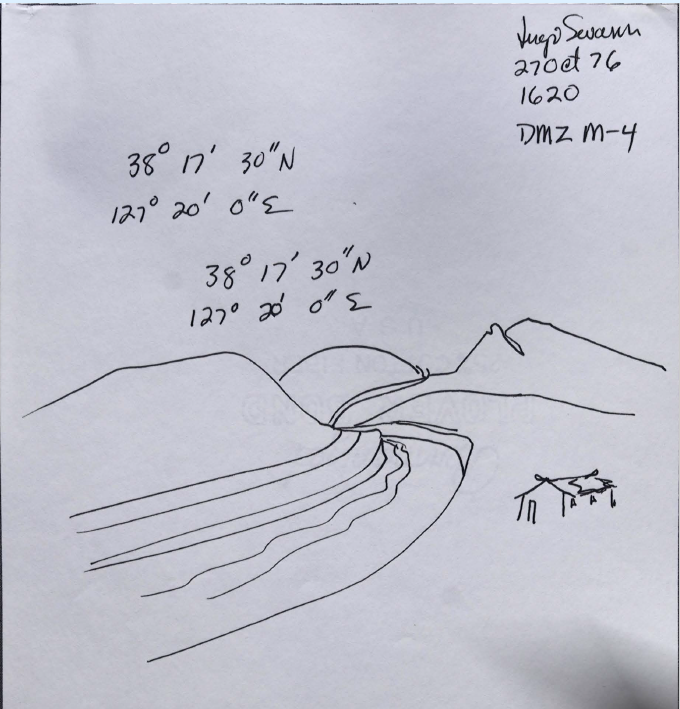 Ingo Swann
27 Oct 76
1620
DMZ M-4
38° 17' 30" N
127° 20' 0" E
38° 17' 30" N
127° 20' 0" E